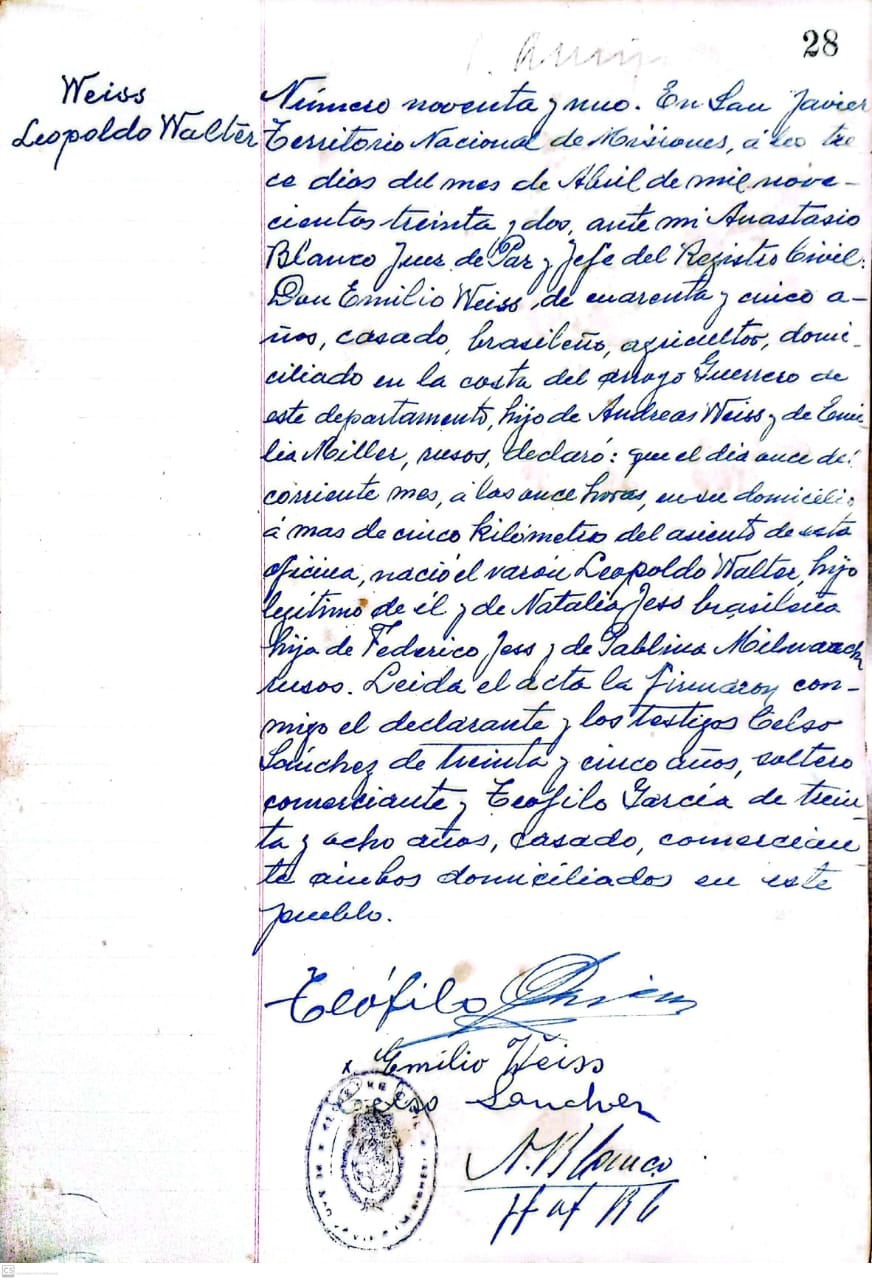 28
Weiss
Leopoldo Walter
Número noventa y uno. En San Javier
Territorio Nacional de Misiones, á los tre
ce dias del mes de Abril de mil nove-
cientos treinta y dos, ante mi Anastasio
Blanco Juez de Paz y Jefe del Registro Civil:
Don Emilio Weiss, de cuarenta y cinco a-
ños, casado, brasileño, agricultor, domi-
ciliado en la costa del arroyo Guerrero de
este departamento, hijo de Andreas Weiss y de Emi-
lia Miller, rusos, declaró: que el dia once del
corriente mes, á las once horas, en su domicilio
á mas de cinco kilómetros del asiento de esta
oficina, nació el varón Leopoldo Walter, hijo
legítimo de él y de Natalia Jess brasileña
hija de Federico Jess y de Pablina
rusos. Leida el acta la firmaron con-
migo el declarante y los testigos Celso
Sánchez de treinta y cinco años, soltero
comerciante y Teofilo García de trein-
ta y ocho años, casado, comercian
te ambos domiciliados en este
pueblo.
Teófilo
x Emilio Weiss
Celso Sanchez
A. Blanco